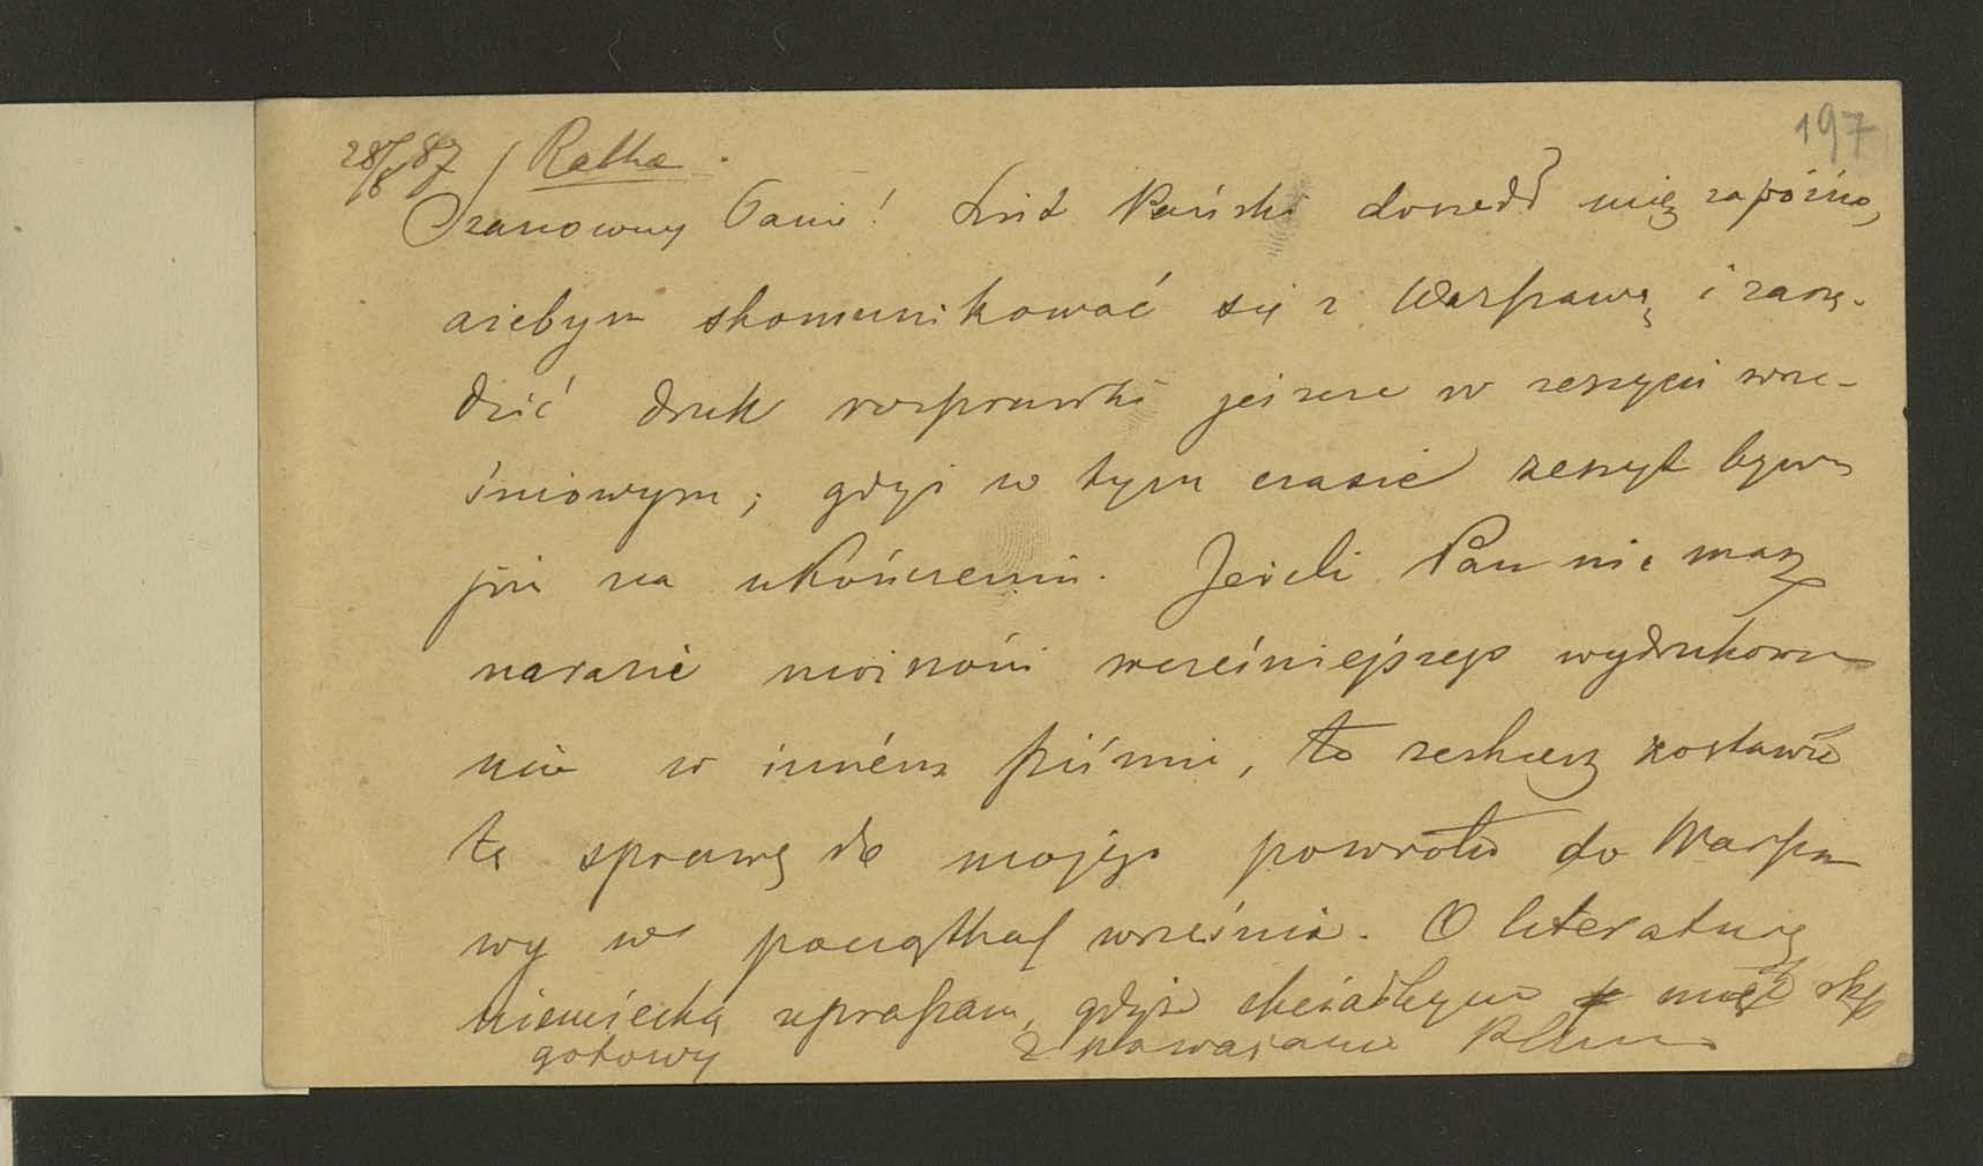 197
28/8 87 / Rabka.
Szanowny Panie! List Pański doszedł mię zapóźno,
ażebym skomunikować się z Warszawą i zarzą-
dzić druk rozprawki jeszcze w zeszycie wrze-
śniowym; gdyż w tym czasie zeszyt bywa
już na ukończeniu. Jeżeli Pan nie masz
narazie możności wcześniejszego wydrukowa
nia w inném piśmie, to zechciej zostawić
tę sprawę do mojego powrotu do Warsza
wy w początkach września. O literaturę
niemiecką upraszam, gdyż chciałbym mieć
gotowy z poważaniem